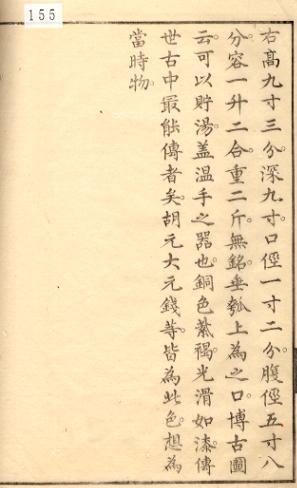 155
右高九寸三分。深九寸。口徑一寸二分。腹徑五寸八
分。容一升二合。重二斤。無銘。垂瓠上為之口。博古圖
云。可以貯湯。盖温手之器也。銅色紫褐。光滑如漆。傳
世古中最能傳者矣。胡元大元錢等。皆為此色。想為
當時物。